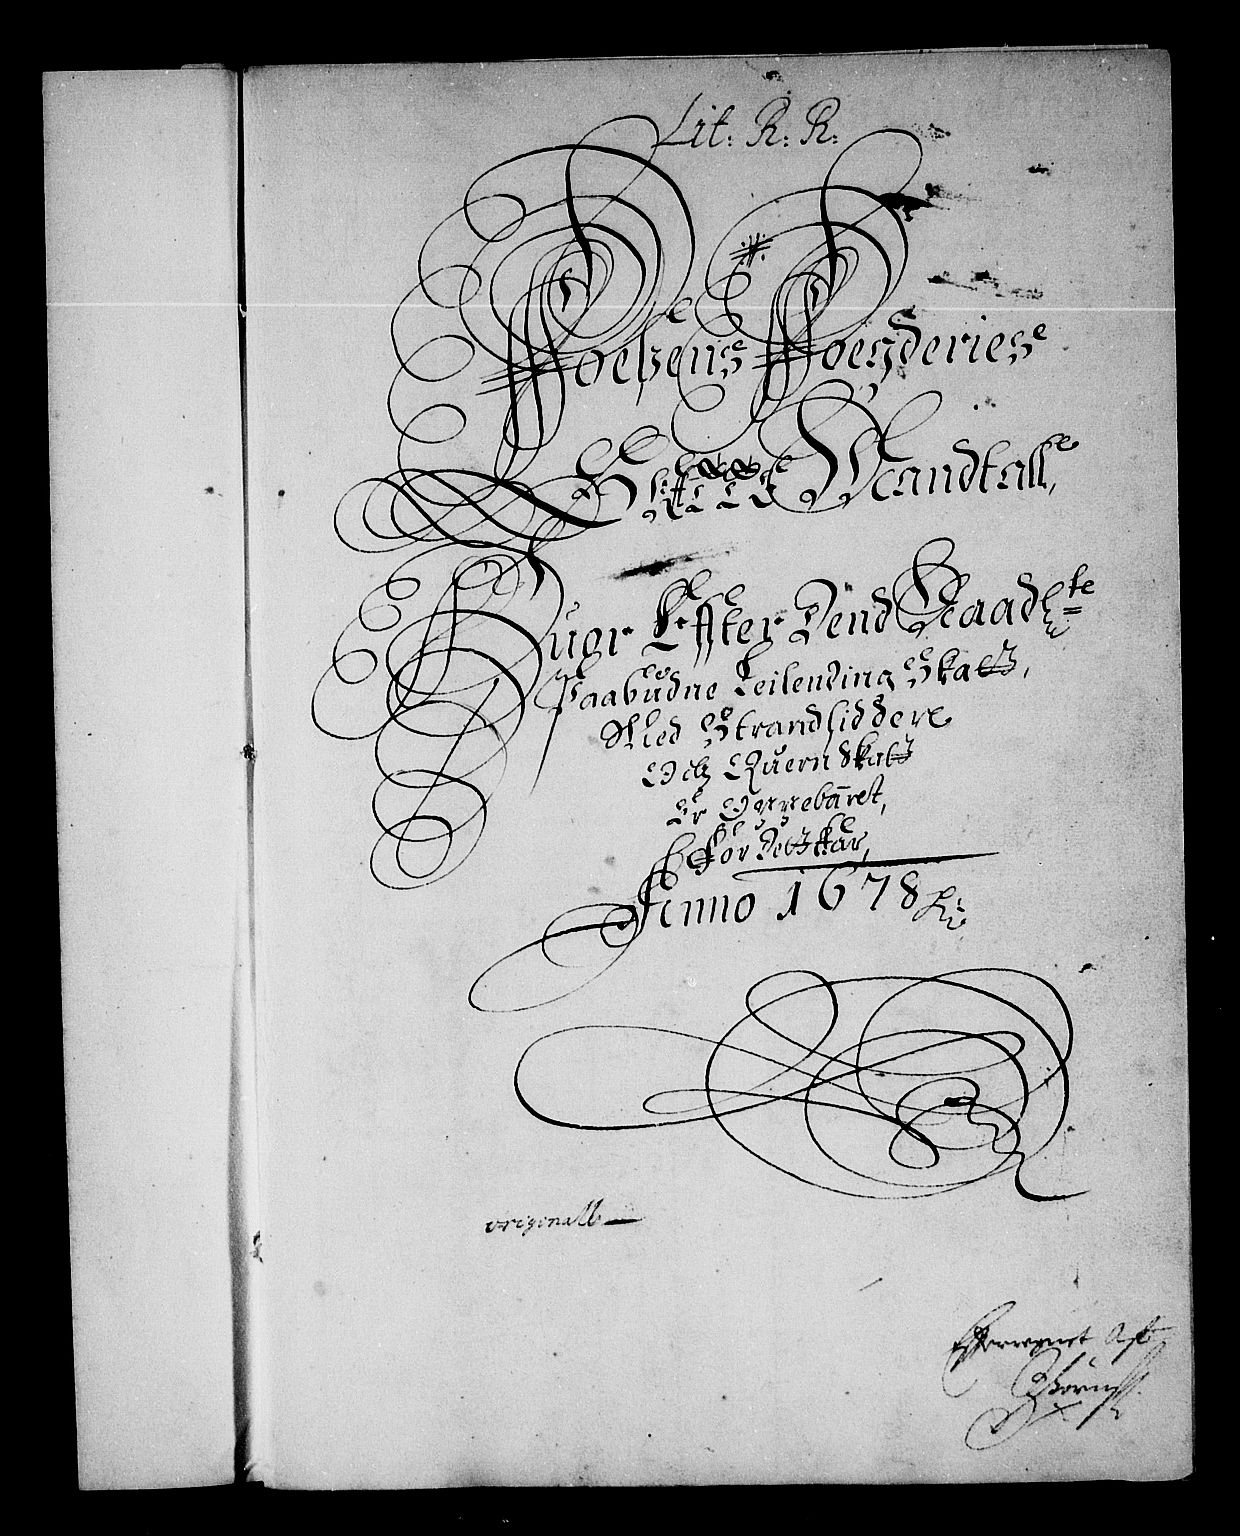 Lit: R: R:
Foeszens Foegderies
Skatte Mandtall,
Huor Effter Dend Naadste
Paabudne Leilending Skatt,
Med Strandsiddere
Och Quern Skatt
Er Oppebaret,
For Dett Aar,
Anno 1678
originall